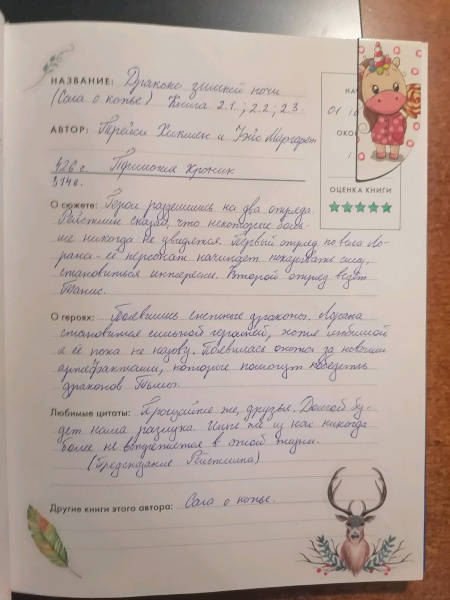 НАЗВАНИЕ: Драконы зимней ночи
(Сага о копье) Книга 2.1.; 2.2.; 2.3.
АВТОР: Трейси Хикмен и Уэйс Маргарет
426 с. Трилогия Хроник
314 с.
НА
01
ОКО
1
ОЦЕНКА КНИГИ
О сюжете: Герои разделились на два отряда.
Рейстлин сказал, что некоторые боль-
ше никогда не увидятся. Первый отряд повела Ло-
рана - её персонаж начинает показывать силу,
становиться интереснее. Второй отряд ведёт
Танис.
О героях: Появились снежные драконы. Лорана
становится сильной героиней, хотя любимой
я её пока не назову. Появилась охота за новыми
артефактами, которые помогут победить
драконов Тьмы.
Любимые цитаты: Прощайте же, друзья. Долгой бу-
дет наша разлука. Иные же из нас никогда
более не встретятся в этой жизни.
(Предсказание Рейстлина)
Другие книги этого автора: Сага о копье.